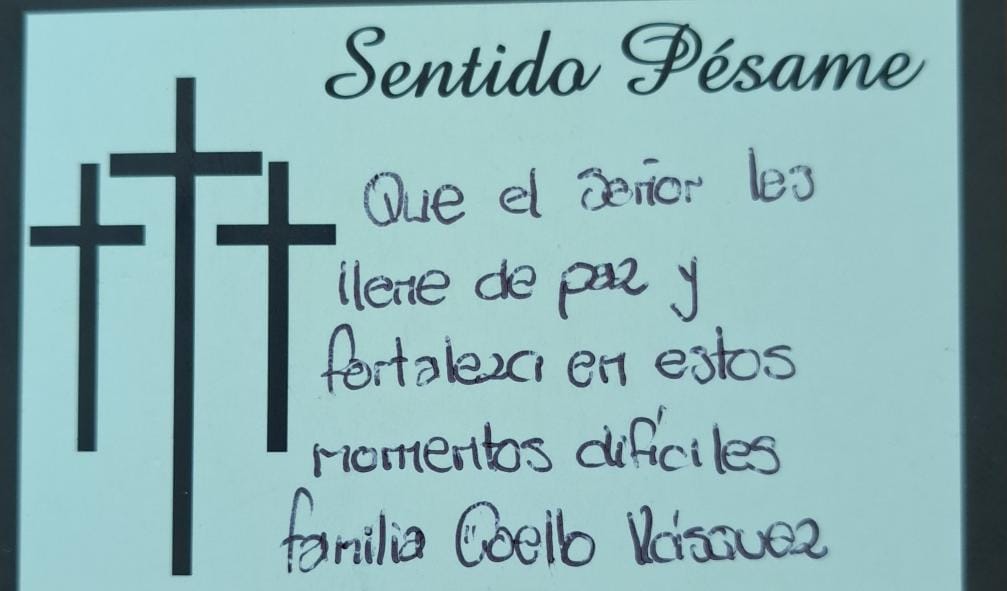 Sentido Pésame
Que el Señor les
llene de paz y
fortaleza en estos
momentos difíciles
familia Coello Vásquez